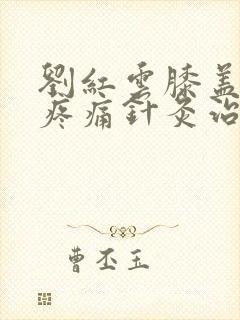 劉紅雲膝盖
疼痛針灸治
曹丕玉